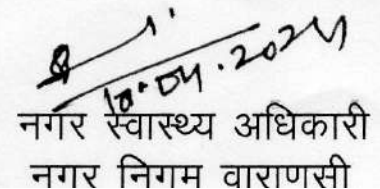 10.04.2024
नगर स्वास्थ्य अधिकारी
नगर निगम वाराणसी